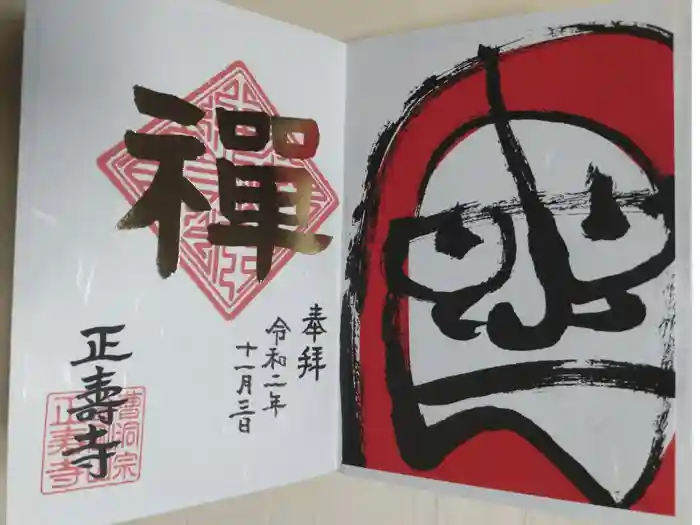 禪
奉拝
令和二年
十一月三日
正壽寺
曹洞宗
正寿寺